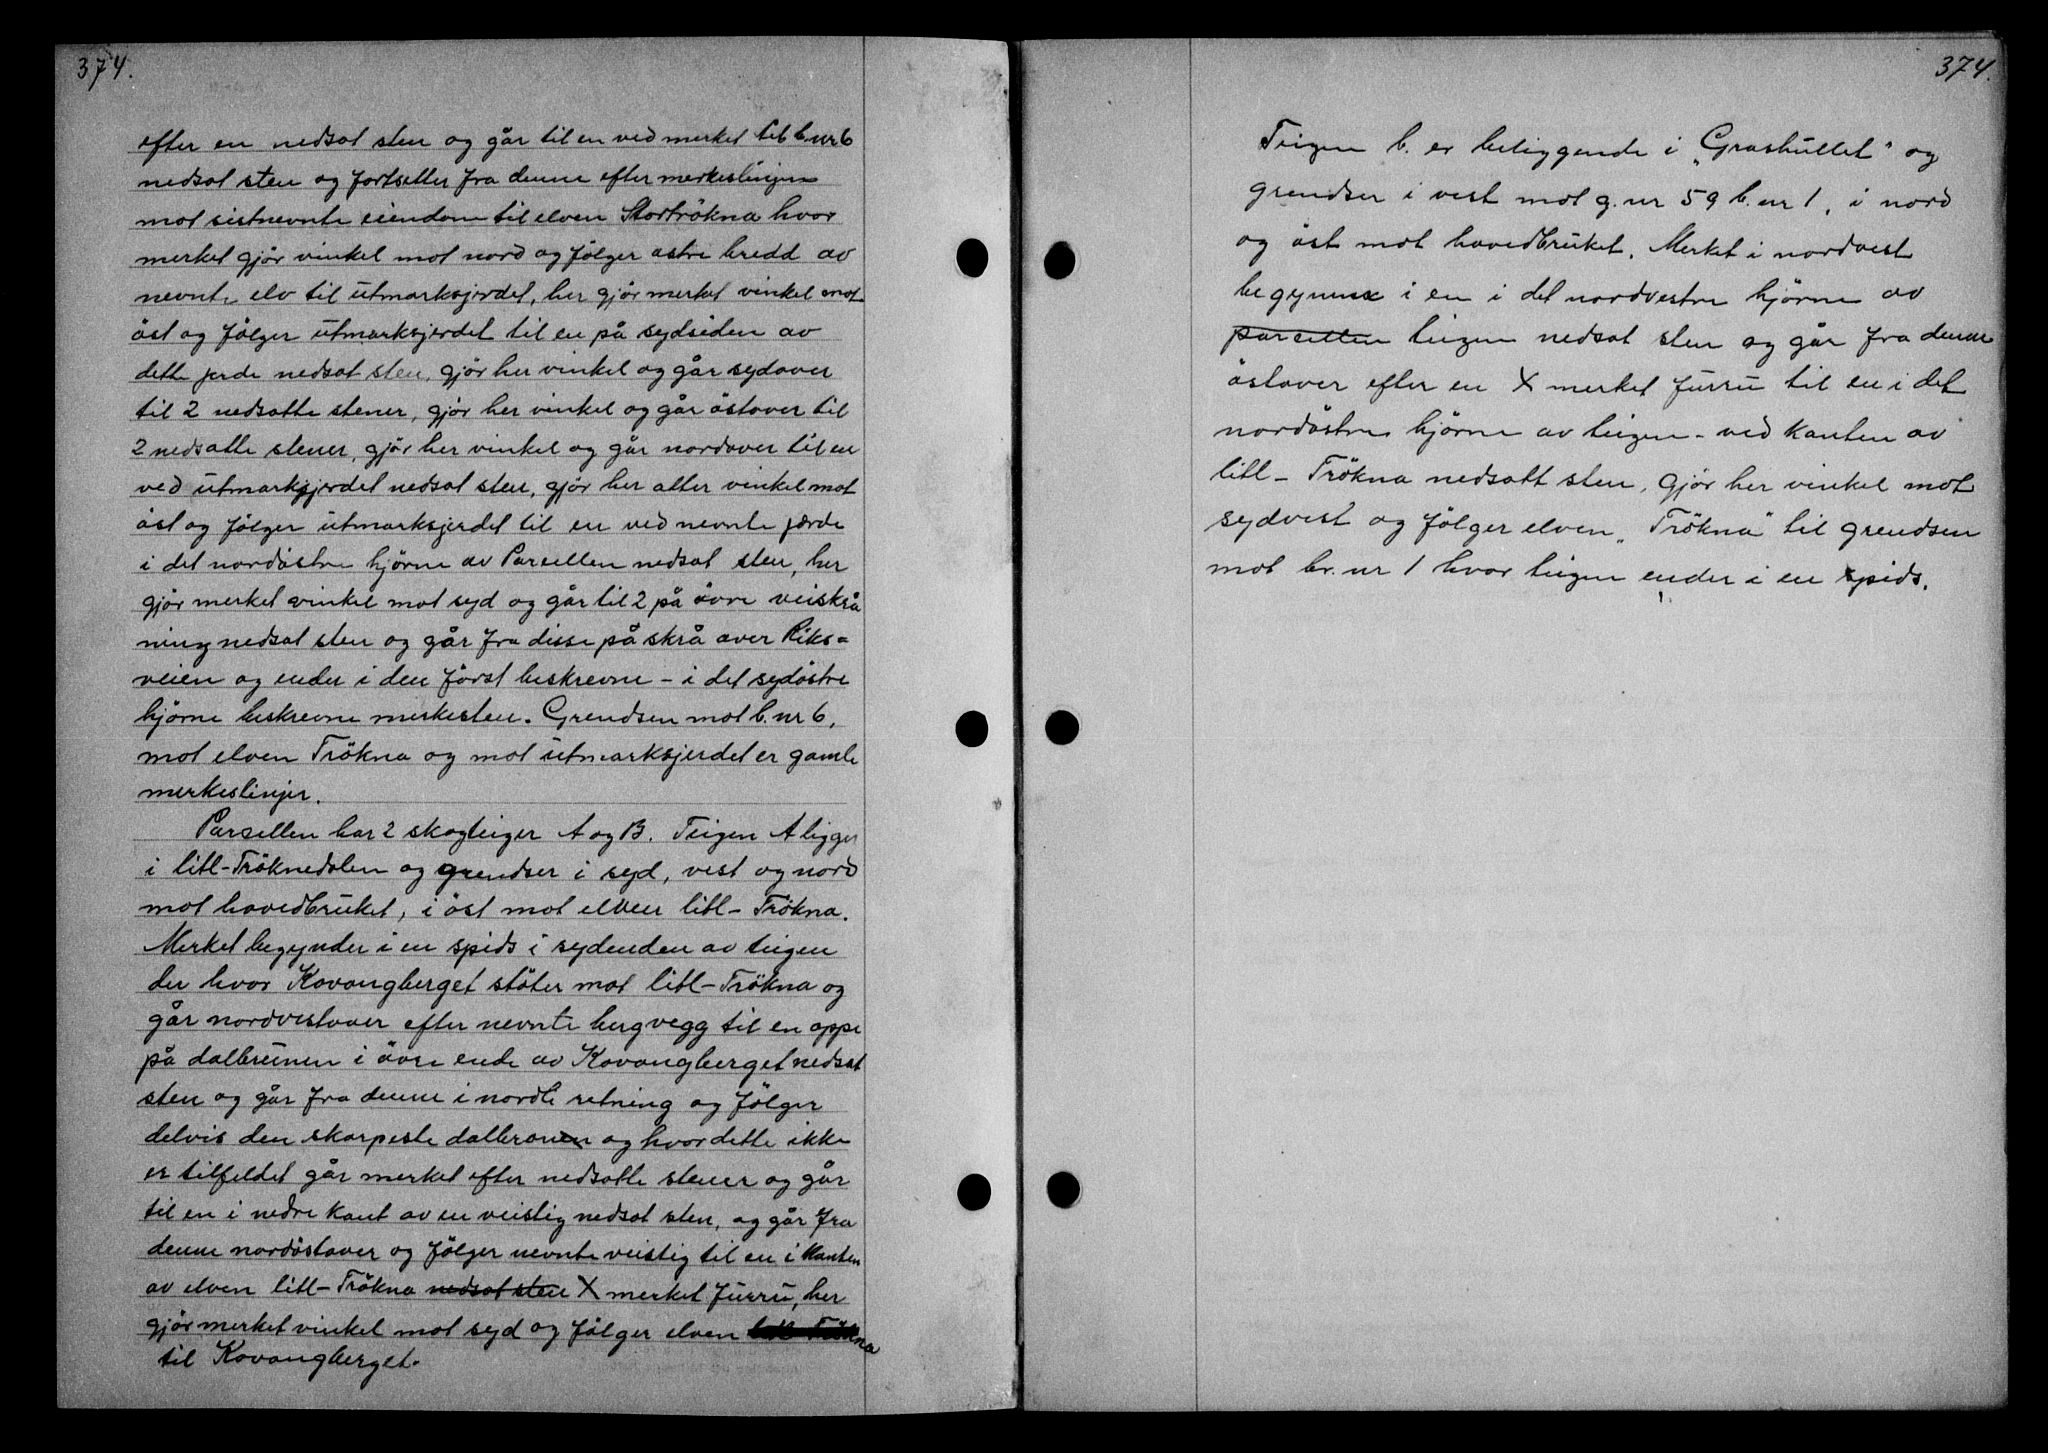 374.
efter en nedsat sten og går til en ved merket til b.nr 6
nedsat sten og fortsetter fra denne efter merkeslinjen
mot sistnevnte eiendom til elven Stortrökna hvor
merket gjör vinkel mot nord og fölger östre bredd av
nevnte elv til utmarksjerdet, her gjör merket vinkel mot
öst og fölger utmarksjerdet til en på sydsiden av
dette jerde nedsat sten, gjör her vinkel og går sydover
til 2 nedsatte stener, gjör her vinkel og går östover til
2 nedsatte stener, gjör her vinkel og går nordover til en
ved utmarksjerdet nedsat sten, gjör her atter vinkel mot
öst og fölger utmarksjerdet til en ved nevnte jærde
i det nordöstre hjörne av Parsellen nedsat sten, her
gjör merket vinkel mot syd og går til 2 på övre veiskrå
ning nedsat sten og går fra disse på skrå over Riks-
veien og ender i den först beskrevne - i det sydöstre
hjörne beskrevne merkesten. Grendsen mot b.nr 6,
mot elven Trökna og mot utmarksjerdet er gamle
merkeslinjer.
Parsellen har 2 skogteiger A og B. Teigen A ligger
i litl-Tröknedalen og grendser i syd, vest og nord
mot hovedbruket, i öst mot elven litl-Trökna.
Merket begynder i en spids i sydenden av teigen
der hvor Kovangberget stöter mot litl-Trökna og
går nordvestover efter nevnte bergvegg til en oppe
på dalbrunen i övre ende av Kovangberget nedsat
sten og går fra denne i nordli retning og fölger
delvis den skarpeste dalbronen og hvor dette ikke
er tilfeldet går merket efter nedsatte stener og går
til en i nedre kant av en veistig nedsat sten, og går fra
denne nordöstover og fölger nevnte veistig til en i kanten
av elven litl-Trökna nedsat sten X merket furru, her
gjör merket vinkel mot syd og fölger elven litl Trökna
til Kovangberget.
374.
Teigen b. er beliggende i "Grashullet" og
grendser i vest mot g.nr 59 b.nr 1, i nord
og öst mot hovedbruket. Merket i nordvest
begynner i en i det nordvestre hjörne av
parsellen teigen nedsat sten og går fra denne
östover efter en X merket furru til en i det
nordöstre hjörne av teigen - ved kanten av
litl-Trökna nedsatt sten, gjör her vinkel mot
sydvest og fölger elven "Trökna" til grendsen
mot br.nr 1 hvor teigen ender i en spids.